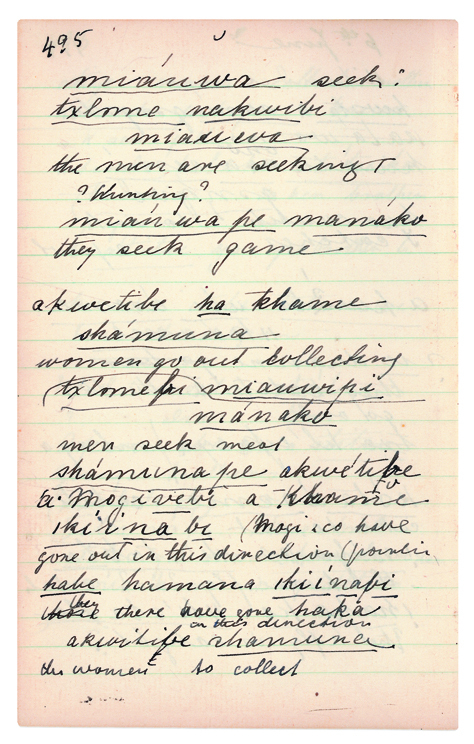 495
miánwa seek.
txlome nakwibi
miauewa
the men are seeking
? Hunting?
mian wa pe manáko
they seek game
akwetibe ha khame
shámuna
women go out collecting
(txlome miauwipi
mánako
men seek meat
shámuna pe akwétibe
ti. Mogivebi a khame
ikíina bi (Mogi & co have
gone out in this direction
habe hamana ikiinabi
they
there have gone haka
in this direction
akwitibe shamuna
the women to collect